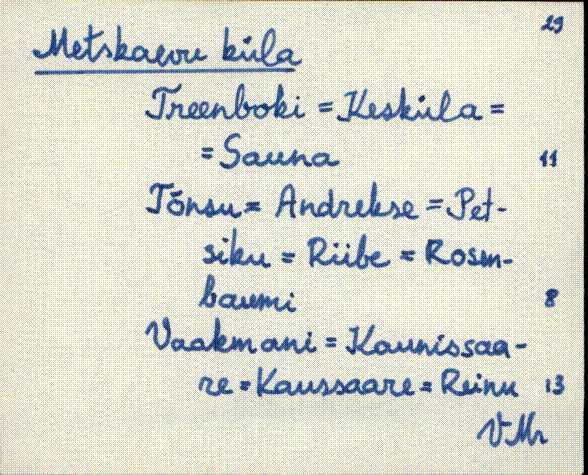 29
Metskaevu küla
Treenboki = Kesküla =
= Sauna 11
Tõnsu = Andrekse = Pet-
siku = Riibe = Rosen-
baumi 8
Vaakmani = Kaunissaa-
re = Kaussaare = Reinu 13
VMr